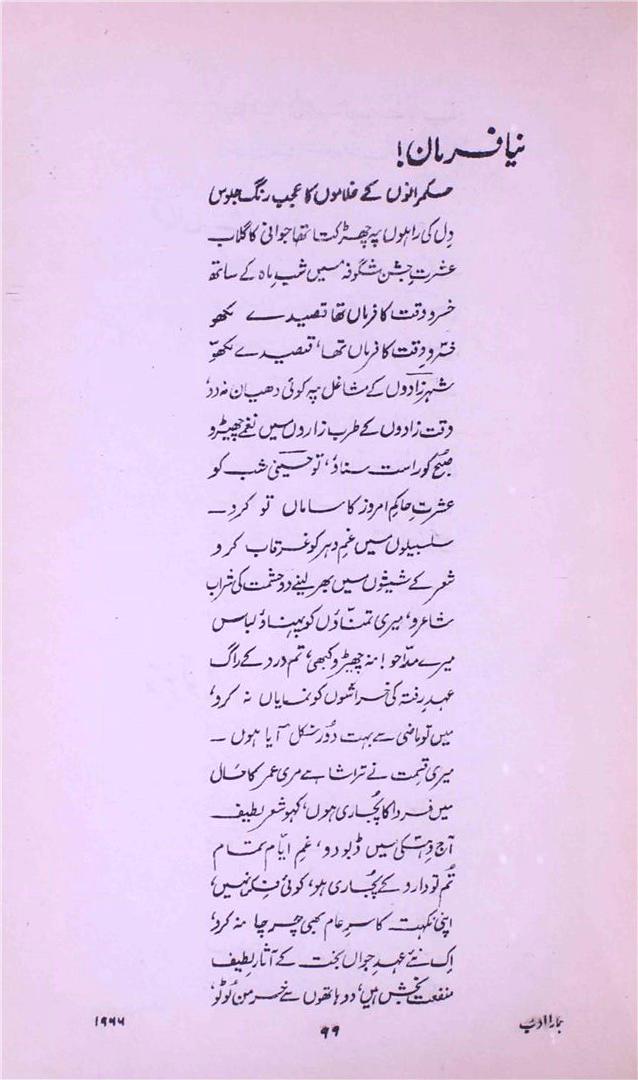 نیا فرمان!
حکمرانوں کے غلاموں کا عجب رنگِ جلوس
دِل کی راہوں پہ چھڑکتا تھا جوانی کا گلاب
عشرتِ جشنِ شگوفہ میں شبِ ماہ کے ساتھ
خسروِ وقت کا فرماں تھا قصیدے لکھو
خسروِ وقت کا فرماں تھا، قصیدے لکھو
شہزادوں کے مشاغل پہ کوئی دھیان نہ دو،
وقت زادوں کے طرب زاروں میں نغمے چھیڑو
صبح کو راست سناؤ، تو حسینی شب کو
عشرتِ حاکمِ امروز کا ساماں تو کرو۔
سلسبیلوں میں غمِ دہر کو غرقاب کرو
شعر کے شیشوں میں بھر لینے دو حشمت کی شراب
شاعرو، میری تمنّاؤں کو پہناؤ لباس
میرے مدّاحو! نہ چھیڑو کبھی، تم درد کے راگ
عہدِ رفتہ کی خراشوں کو نمایاں نہ کرو،
میں تو ماضی سے بہت دُور نکل آیا ہوں ۔
میری قسمت نے تراشا ہے مری عمر کا حال
میں فردا کا پُجاری ہوں، کہو شعرِ لطیف
آج وہسکی میں ڈبو دو، غمِ ایّام تمام
تُم تو دارد کے پُجاری ہو، کوئی فکر نہیں،
اپنی نکہت کا سرِ عام بھی چرچا نہ کرو،
اِک نئے عہدِ جواں بخت کے آثارِ لطیف
منفعت بخش ہیں، دو ہاتھوں سے خرمن لُوٹو،
ہمارا ادب
۹۹
۱۹۶۶